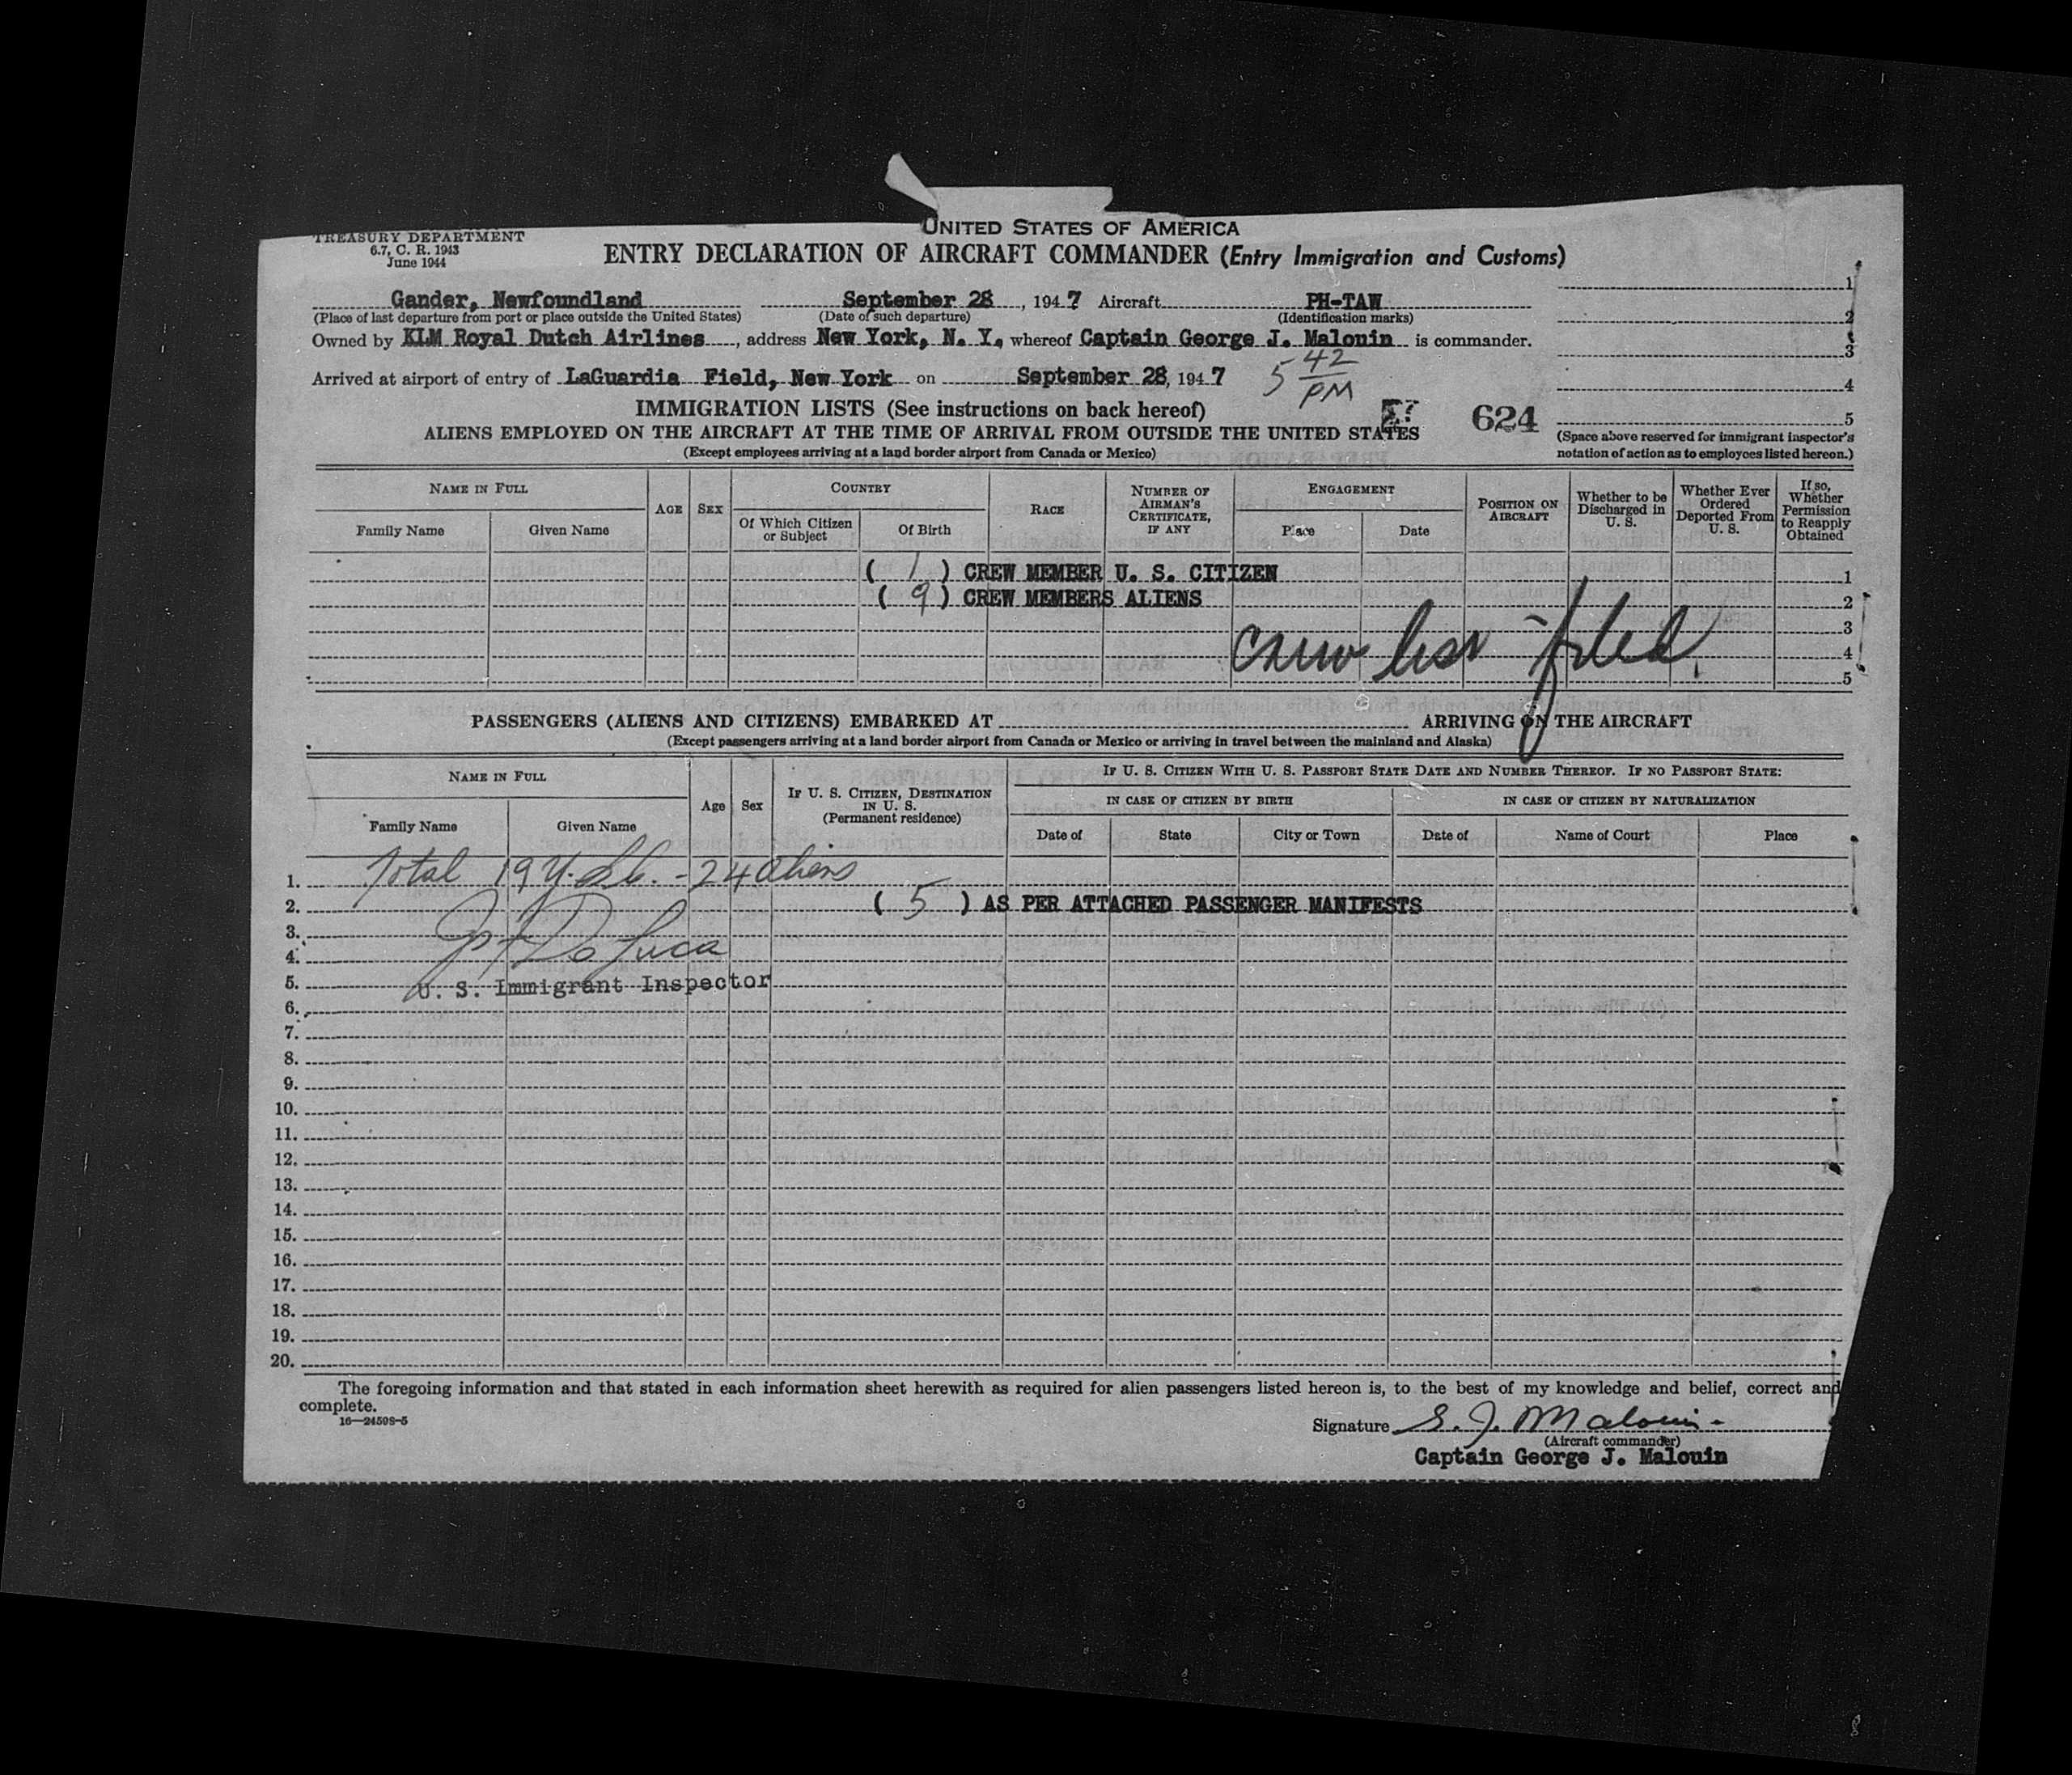 UNITED STATES OF AMERICA
TREASURY DEPARTMENT
6.7, C. R. 1943
June 1944
ENTRY DECLARATION OF AIRCRAFT COMMANDER (Entry Immigration and Customs)
Gander, Newfoundland September 28, 1947 Aircraft PH-TAW
(Place of last departure from port or place outside the United States) (Date of such departure) (Identification marks)
Owned by KLM Royal Dutch Airlines, address New York, N. Y., whereof Captain George J. Malouin is commander.
Arrived at airport of entry of LaGuardia Field, New York on September 28, 1947 5 42 PM
1
2
3
4
5
(Space above reserved for immigrant inspector's
notation of action as to employees listed hereon.)
IMMIGRATION LISTS (See instructions on back hereof)
624
ALIENS EMPLOYED ON THE AIRCRAFT AT THE TIME OF ARRIVAL FROM OUTSIDE THE UNITED STATES
(Except employees arriving at a land border airport from Canada or Mexico)
NAME IN FULL
Family Name Given Name
AGE SEX
COUNTRY
Of Which Citizen or Subject Of Birth
RACE
NUMBER OF AIRMAN'S CERTIFICATE, IF ANY
ENGAGEMENT
Place Date
POSITION ON AIRCRAFT
Whether to be Discharged in U. S.
Whether Ever Ordered Deported From U. S.
If so, Whether Permission to Reapply Obtained
( 1 ) CREW MEMBER U. S. CITIZEN 1
( 9 ) CREW MEMBERS ALIENS 2
3
crew list - filed 4
5
PASSENGERS (ALIENS AND CITIZENS) EMBARKED AT ARRIVING ON THE AIRCRAFT
(Except passengers arriving at a land border airport from Canada or Mexico or arriving in travel between the mainland and Alaska)
NAME IN FULL
Family Name Given Name
Age Sex
IF U. S. CITIZEN, DESTINATION IN U. S.
(Permanent residence)
IF U. S. CITIZEN WITH U. S. PASSPORT STATE DATE AND NUMBER THEREOF. IF NO PASSPORT STATE:
IN CASE OF CITIZEN BY BIRTH IN CASE OF CITIZEN BY NATURALIZATION
Date of State City or Town Date of Name of Court Place
1. Total 19 - 24 aliens
2. ( 5 ) AS PER ATTACHED PASSENGER MANIFESTS
3.
4. De Luca
5. U. S. Immigrant Inspector
6.
7.
8.
9.
10.
11.
12.
13.
14.
15.
16.
17.
18.
19.
20.
The foregoing information and that stated in each information sheet herewith as required for alien passengers listed hereon is, to the best of my knowledge and belief, correct and
complete.
16—24598-5
Signature G. J. Malouin
(Aircraft commander)
Captain George J. Malouin